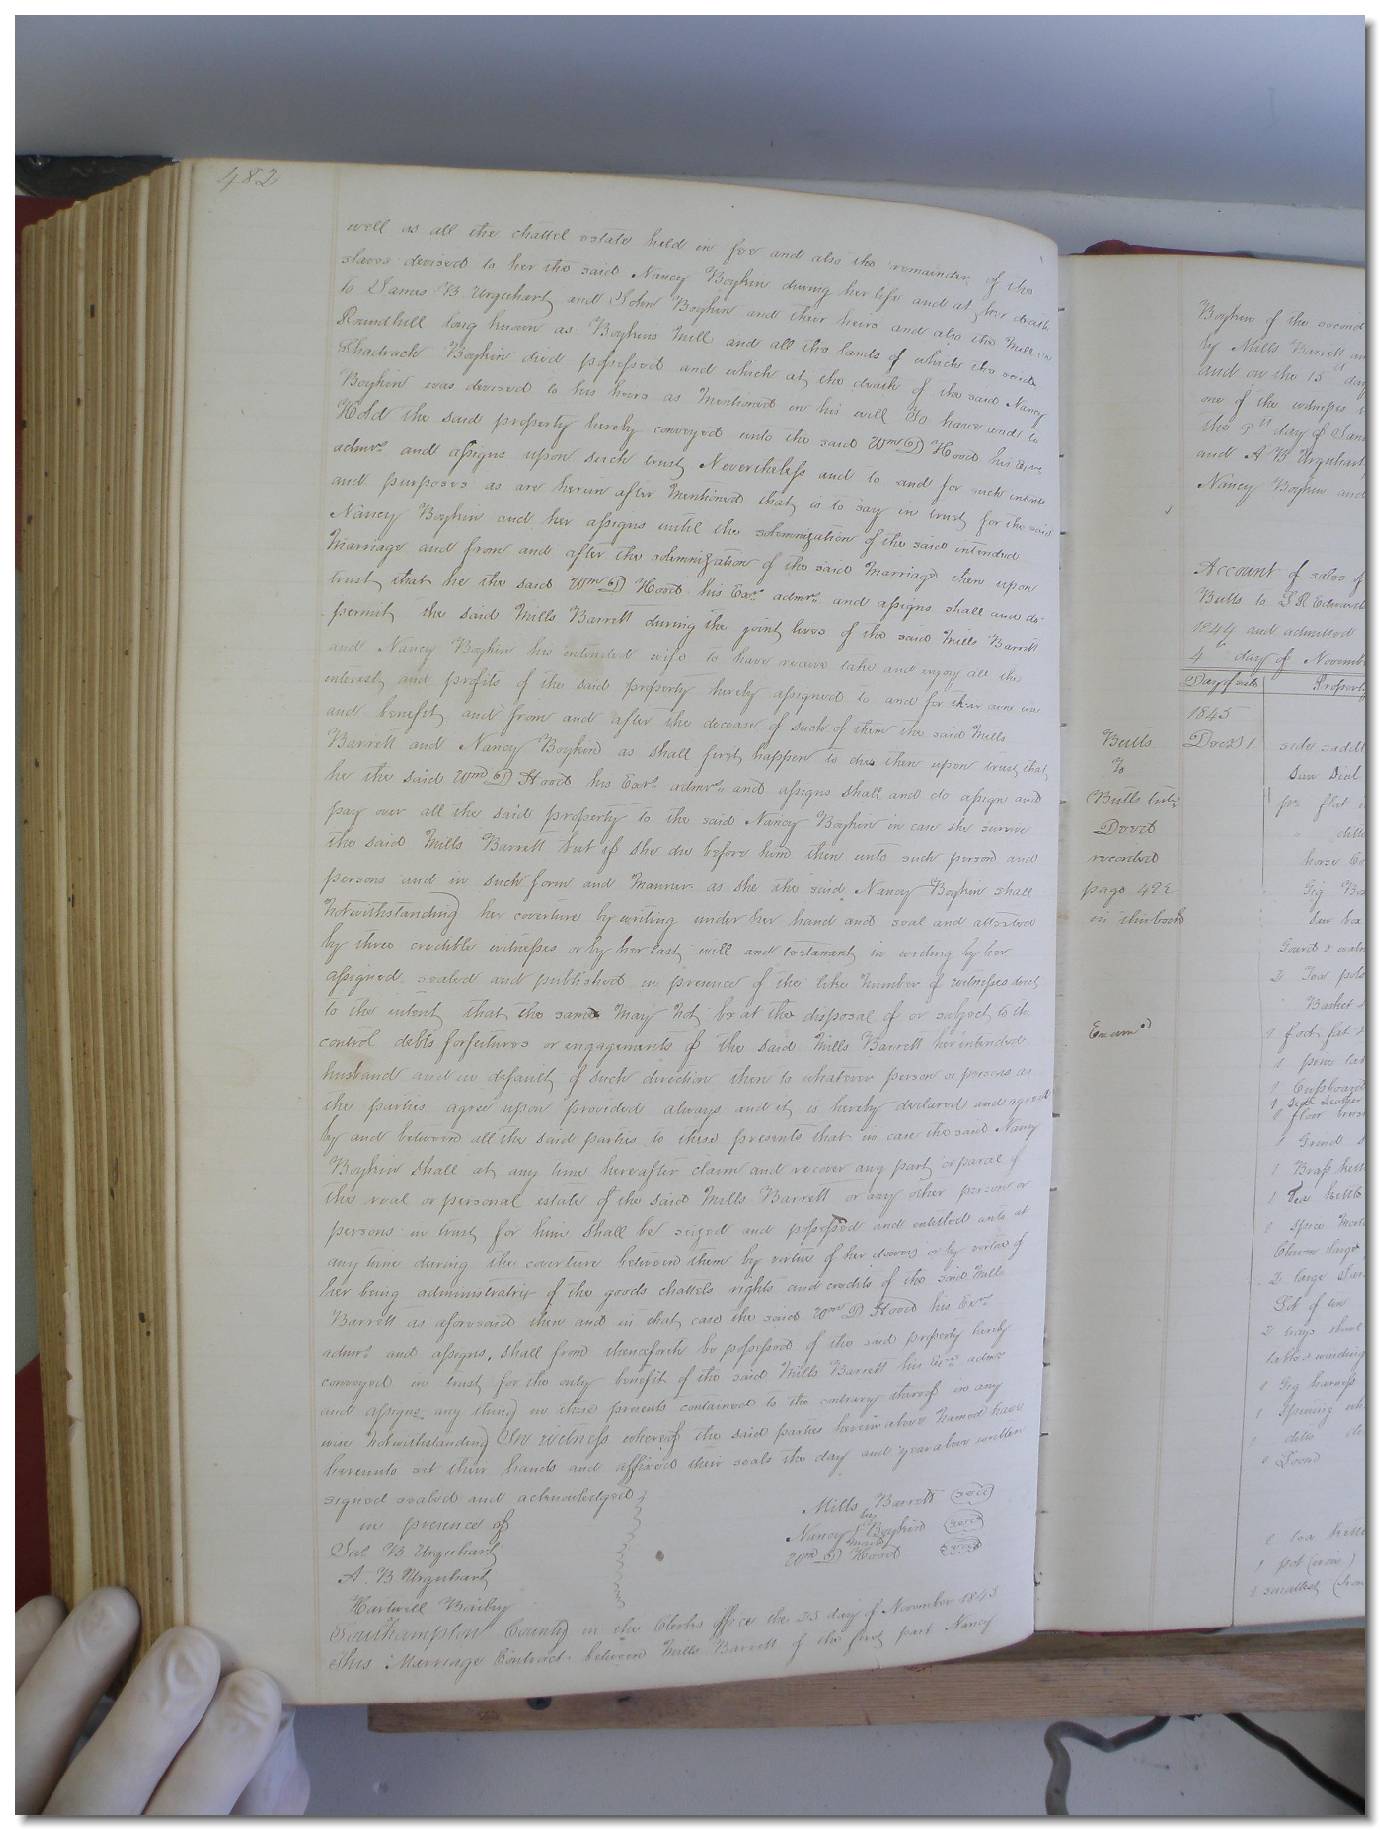 482
well as all the chattel estate held in fee and also the remainder of the
slaves devised to her the said Nancy Boykin during her life and at her death
to James B Urquhart and John Boykin and their heirs and also the Mill on
Roundhill long known as Boykins Mill and all the lands of which the said
Shadrack Boykin died possessed and which at the death of the said Nancy
Boykin was devised to his heirs as Mentioned in his will To have and to
Hold the said property hereby conveyed unto the said Wm D Hood his Exrs
admrs and assigns upon such trust Nevertheless and to and for such intents
and purposes as are herein after Mentioned that is to say in trust for the said
Nancy Boykin and her assigns until the solemnization of the said intended
Marriage and from and after the solemnization of the said Marriage then upon
trust that he the said Wm D Hood his Exrs admrs and assigns shall and do
permit the said Mills Barrett during the joint lives of the said Mills Barrett
and Nancy Boykin his intended wife to have receive take and enjoy all the
interest and profits of the said property hereby assigned to and for their own use
and benefit and from and after the decease of such of them the said Mills
Barrett and Nancy Boykin as shall first happen to die then upon trust that
he the said Wm D Hood his Exrs admrs and assigns shall and do assign and
pay over all the said property to the said Nancy Boykin in case she survive
the said Mills Barrett but if she die before him then unto such person and
persons and in such form and Manner as she the said Nancy Boykin shall
Notwithstanding her coverture by writing under her hand and seal and attested
by three credible witnesses or by her last will and testament in writing by her
assigned sealed and published in presence of the like Number of witnesses direct
to the intent that the same May Not be at the disposal of or subject to the
control debts forfeitures or engagements of the said Mills Barrett her intended
husband and in default of such direction then to whatever person or persons as
the parties agree upon provided always and it is hereby declared and agreed
by and between all the said parties to these presents that in case the said Nancy
Boykin shall at any time hereafter claim and recover any part or parcel of
the real or personal estate of the said Mills Barrett or any other person or
persons in trust for him shall be seized and possessed and entitled unto at
any time during the coverture between them by virtue of her dowery or by virtue of
her being administratrix of the goods chattels rights and credits of the said Mills
Barrett as aforesaid then and in that case the said Wm D Hood his Exrs
admrs and assigns, shall from thenceforth be possessed of the said property hereby
conveyed in trust for the only benefit of the said Mills Barrett his Exrs admrs
and assigns any thing in these presents contained to the contrary thereof in any
wise Notwithstanding In witness whereof the said parties herein above Named have
hereunto set their hands and affixed their seals the day and year above written
signed sealed and acknowledged
in presence of
Sal B Urquhart
A. B Urquhart
Hartwell Bailey
Mills Barrett (seal)
by
Nancy Boykin (seal)
mark
Wm D Hood (seal)
Southampton County in the Clerks office the 23 day of November 1843
This Marriage Contract between Mills Barrett of the first part Nancy
Boykin of the second
by Mills Barrett an
and on the 15th day
one of the witnesses
the day of
and A B Urquhart
Nancy Boykin and
Account of sales of
Butts to S R Edwards
1844 and admitted
4th day of Novemb
Day of sale Property
1845
Butts
To
Butts
Deed
recorded
page 422
in this book
Decr 1
side saddl
Sun Dial
pr flat
" ditto
horse
Gig
Tea
Basket
Examd
Cupboard
1 Grind
1 Brass kett
1 Tea kettle
1 Spice Mort
2 large
2 trays
1 Gig harness
1 Spinning wh
1 ditto
1 Loom
1 tea kettle
1 pot (iron)